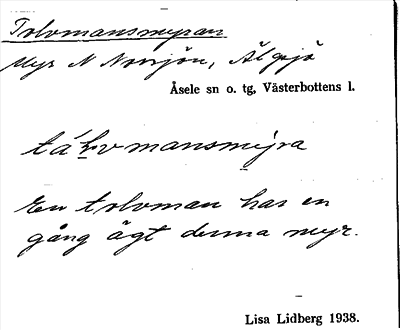 Tolvmansmyran
Myr N Norrsjön, Älgsjö
Åsele sn o. tg, Västerbottens l.
tål̥vmansmyra
En tolvman har en
gång ägt denna myr.
Lisa Lidberg 1938.